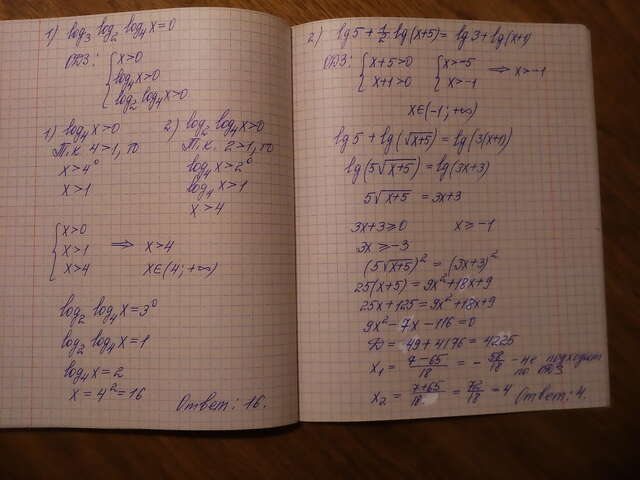 1) log₃ log₂ log₄ x = 0
ОДЗ: { x > 0
log₄ x > 0
log₂ log₄ x > 0
1) log₄ x > 0
Т.к. 4 > 1, то
x > 4⁰
x > 1
2) log₂ log₄ x > 0
Т.к. 2 > 1, то
log₄ x > 2⁰
log₄ x > 1
x > 4
{ x > 0
x > 1 ⇒ x > 4
x > 4 x ∈ (4; +∞)
log₂ log₄ x = 3⁰
log₂ log₄ x = 1
log₄ x = 2
x = 4² = 16
Ответ: 16.
2) lg 5 + ½ lg (x+5) = lg 3 + lg (x+1)
ОДЗ: { x+5 > 0 { x > -5 ⇒ x > -1
x+1 > 0 x > -1
x ∈ (-1; +∞)
lg 5 + lg (√x+5) = lg (3(x+1))
lg (5√x+5) = lg (3x+3)
5√x+5 = 3x+3
3x+3 ≥ 0 x ≥ -1
3x ≥ -3
(5√x+5)² = (3x+3)²
25(x+5) = 9x²+18x+9
25x+125 = 9x²+18x+9
9x² - 7x - 116 = 0
D = 49 + 4176 = 4225
x₁ = 7-65/18 = - 58/18 - не подходит
по ОДЗ
x₂ = 7+65/18 = 72/18 = 4 Ответ: 4.